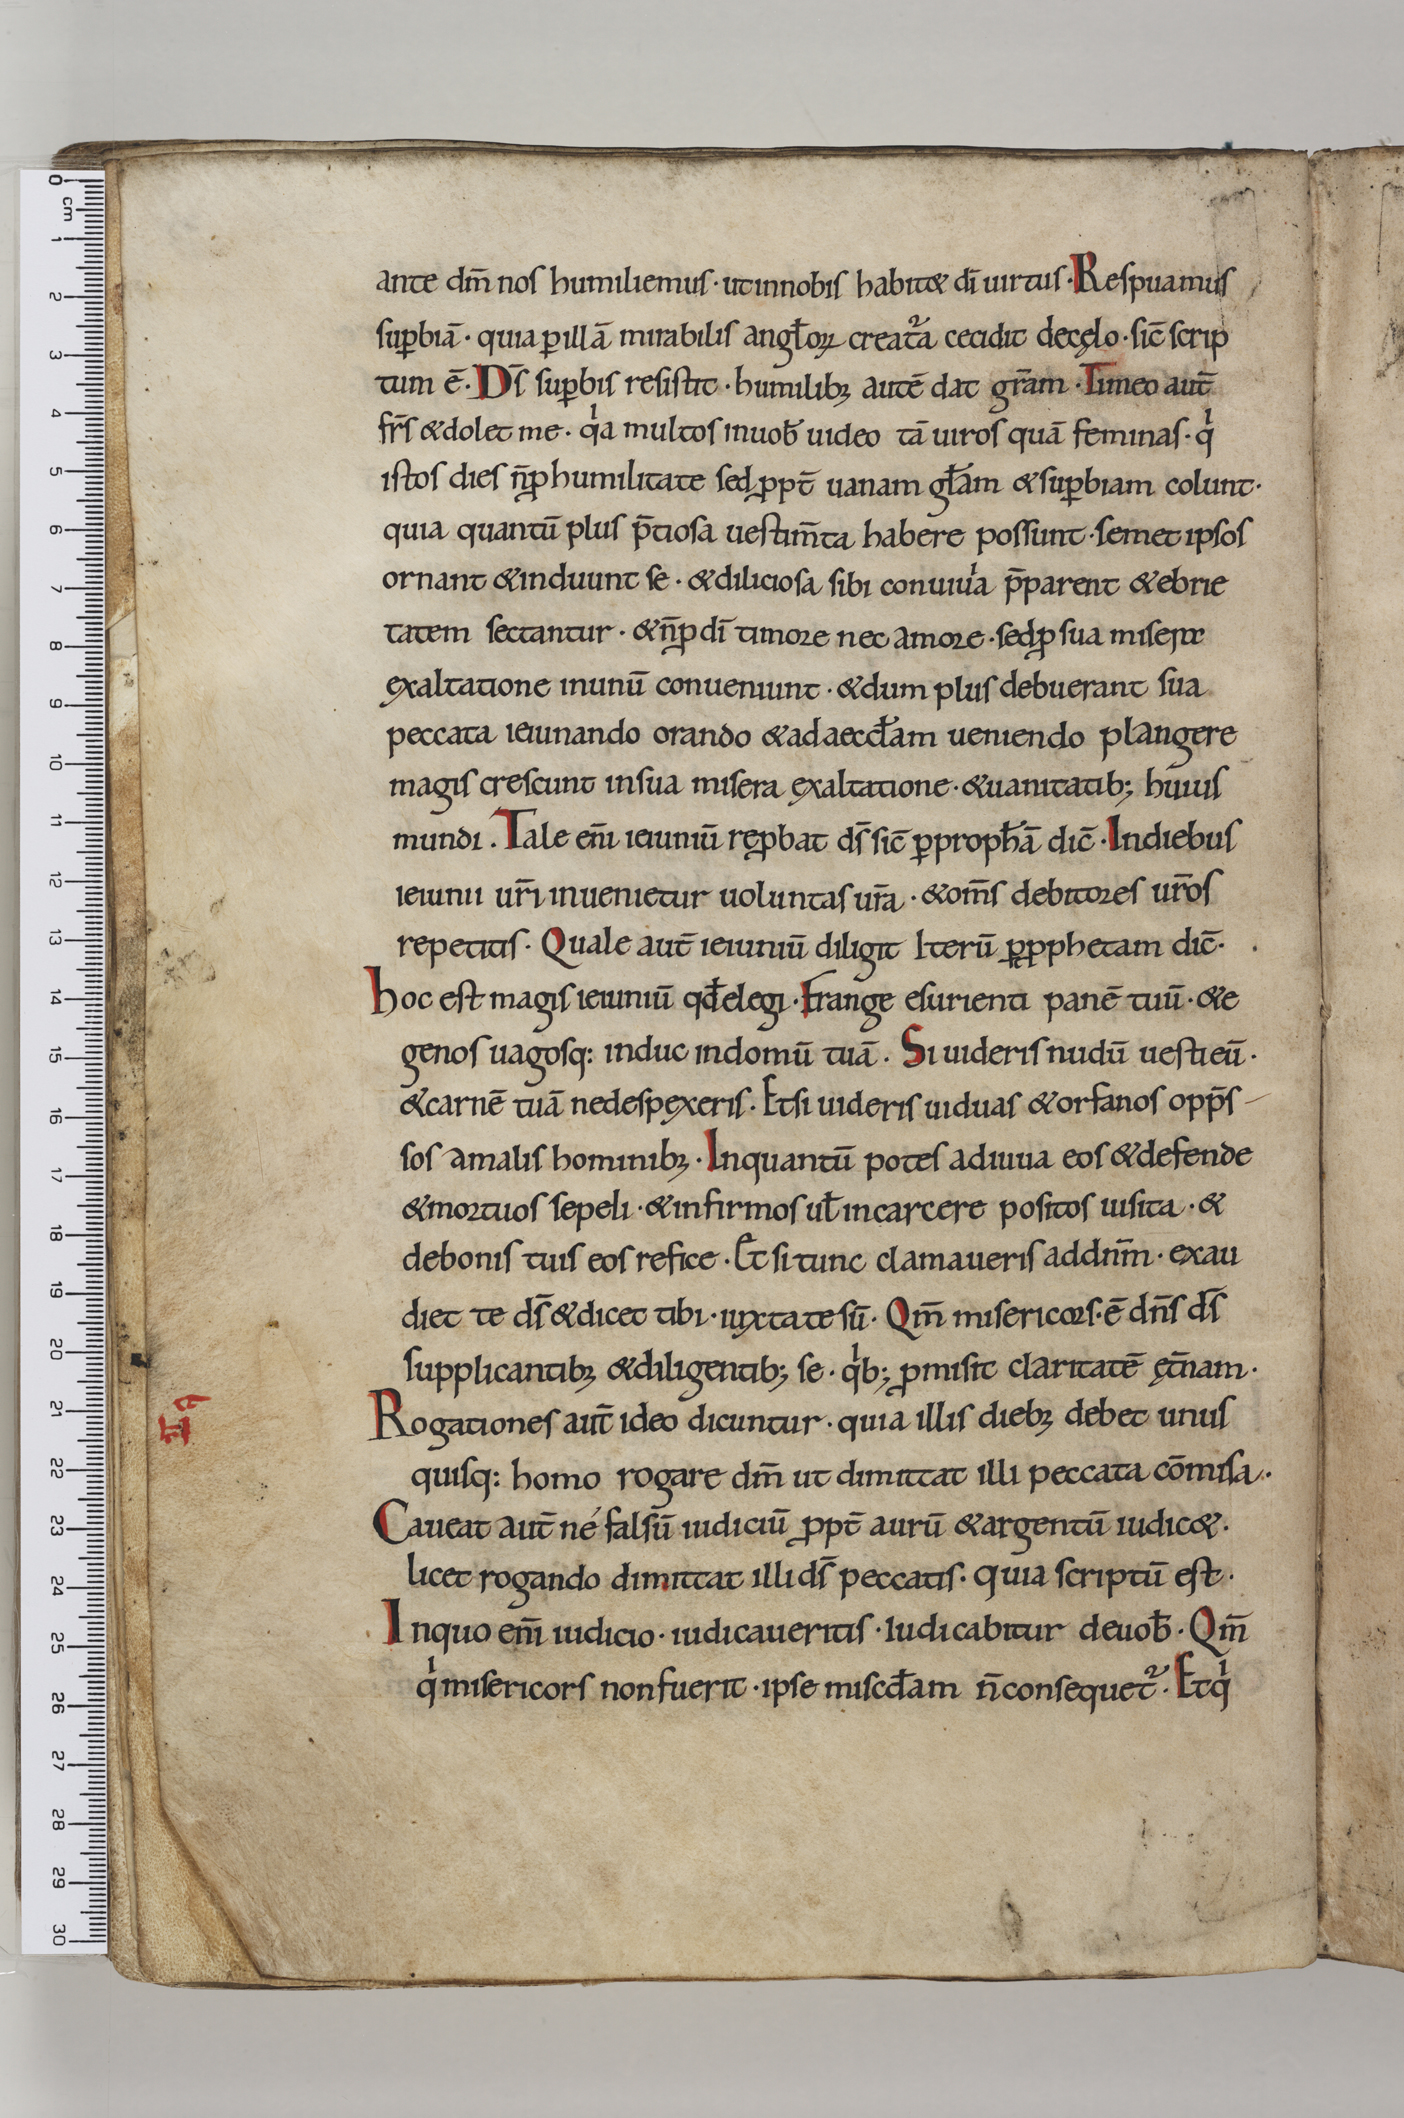 ante dm̄ nos humiliemus · ut innobis habit& dī uirtus · Respuamus
suꝑbiā · quia ꝑ illā mirabilis angłoꝝ creat᷑a cecidit decęlo · sic̄ scrip
tum ē · Ds̄ suꝑbis resistit · humilibꝫ autē dat gr̄am · Timeo aut̄
fr̄s & dolet me · qͥa multos inuob̄ uideo tā uiros quā feminas · qͥ
istos dies n̄ ꝓ humilitate sed ꝓpt̄ uanam gl̄am & suꝑbiam colunt ·
quia quantū plus p̄tiosa uestim̄ta habere possunt · semet ipsos
ornant & induunt se · & diliciosa sibi conuiuͥa p̄parent & ebrie
tatem sectantur · & n̄ ꝓ dī timore nec amore · sed ꝓ sua miseræ
ęxaltatione inunū conueniunt · & dum plus debuerant sua
peccata ieiunando orando & adaeccl̄am ueniendo plangere
magis crescunt insua misera ęxaltatione · & uanitatib; huius
mundi . Tale enī ieiuniū reꝓbat ds̄ sic̄ ꝑ proph̄ā dic̄ · Indiebus
ieiunii ur̄i inuenietur uoluntas ur̄a · & om̄s debitores ur̄os
repetitis · Quale aut̄ ieiuniū diligit Iterū ꝑ ꝓphetam dic̄ ·
hoc est magis ieiuniū qđ elegi · Frange esurienti panē tuū · & e
genos uagosq: induc indomū tuā . Si uideris nudū uesti eū ·
& carnē tuā nedespęxeris · Et si uideris uiduas & orfanos opp̄s
sos amalis hominibꝫ · Inquantū potes adiuua eos & defende
& mortuos sepeli · & infirmos uł incarcere positos uisita · &
debonis tuis eos refice · Et si tunc clamaueris addnm̄ · exau
diet te ds̄ & dicet tibi · iuxta te sū · Qm̄ misericors · ē dn̄s ds̄
supplicantibꝫ & diligentib; se · qͥb; ꝓmisit claritatē ęt̄nam ·
Rogationes aut̄ ideo dicuntur · quia illis diebꝫ debet unus
quisq: homo rogare dm̄ ut dimittat illi peccata cōmisa ·
Caueat aut̄ né falsū iudiciū ꝓpt̄ aurū & argentū iudic& ·
licet rogando dimittat illi ds̄ peccatis · quia scriptū est ·
Inquo enī iudicio · iudicaueritis · Iudicabitur deuob̄ · Qm̄
qͥ misericors non fuerit · ipse miscđam n̄ consequet᷑ · Et qͥ